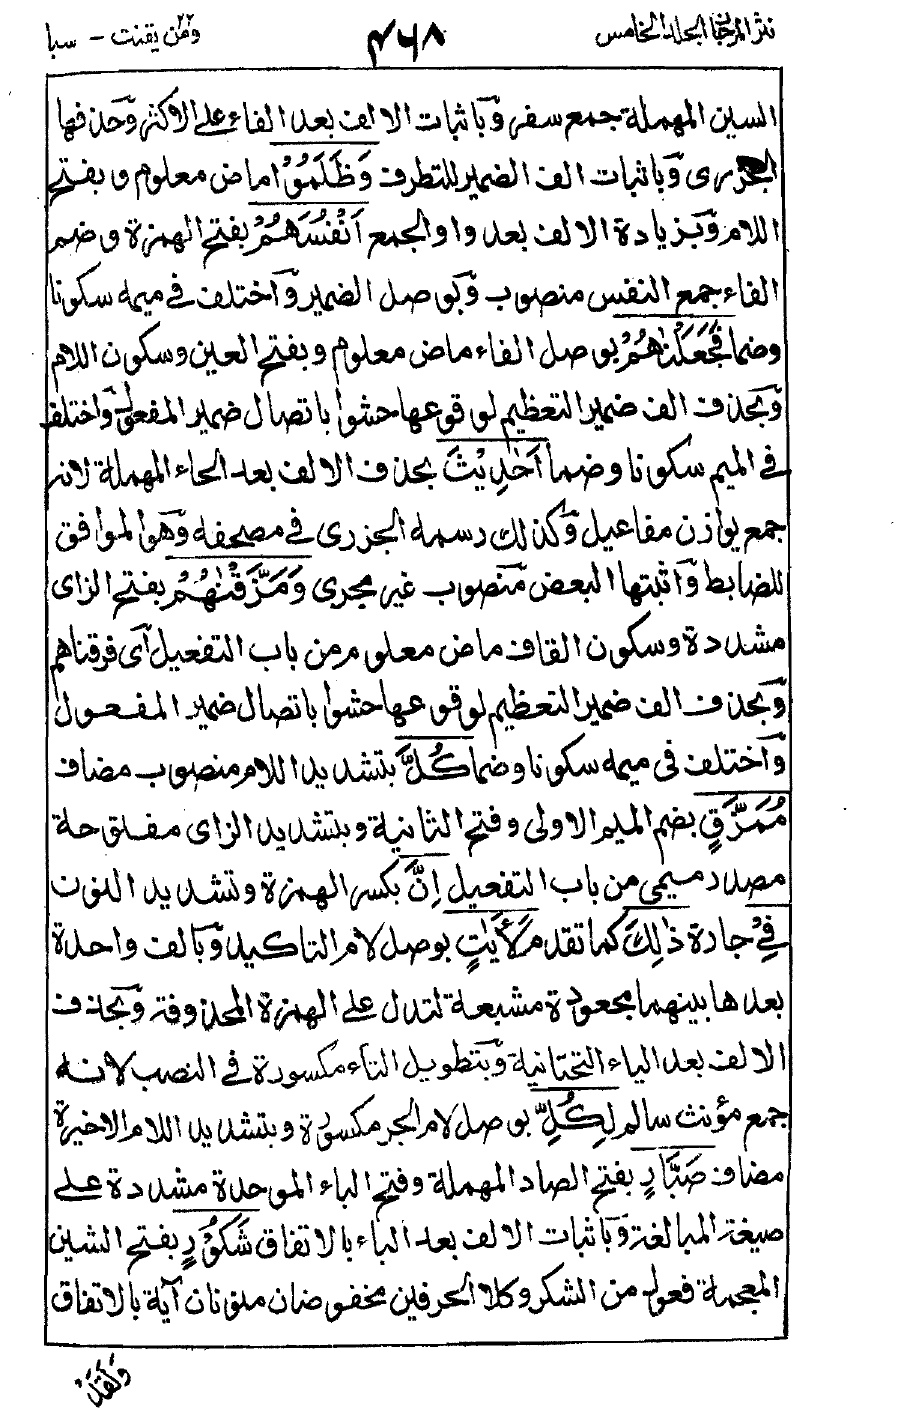 نثر المرجان الجلد الخامس ٤٦٨ ومن يقنت ٢٢ - سبا
السين المهملة جمع سفر وّباثبات الالف بعد الفاء على الاكثر وّحذفها
الجزرى وّباثبات الف الضمير للتطرف وَظَلَمُوْٓا ماض معلوم و بفتح
اللام وّبزيادة الالف بعد واو الجمع اَنْفُسَهُمْ بفتح الهمزة وضم
الفاء جمع النفس منصوب وّبوصل الضمير وّاختلف فى ميمه سكونا
وضما فَجَعَلْنٰهُمْ بوصل الفاء ماض معلوم وبفتح العين وسكون اللام
وّبحذف الف ضمير التعظيم لوقوعها حشوا باتصال ضمير المفعول وّاختلف
فى الميم سكونا وضما اَحَادِيْثَ بحذف الالف بعد الحاء المهملة لانه
جمع يوازن مفاعيل وّكذلك رسمه الجزرى فى مصحفه وّهو الموافق
للضابط وّاثبتها البعض منصوب غير مجرى وَمَزَّقْنٰهُمْ بفتح الزاى
مشددة وسكون القاف ماض معلوم من باب التفعيل اى فرقناهم
وّبحذف الف ضمير التعظيم لوقوعها حشوا باتصال ضمير المفعول
وّاختلف فى ميمه سكونا وضما كُلَّ بتشديد اللام منصوب مضاف
مُمَزَّقٍ بضم الميم الاولى وفتح الثانية وبتشديد الزاى مفتوحة
مصدر ميمى من باب التفعيل اِنَّ بكسر الهمزة وتشديد النون
فِىْ جادة ذٰلِكَ كما تقدم لَاٰيٰتٍ بوصل لام التاكيد وّبالف واحدة
بعدها بينهما مجعودة مشبعة لتدل على الهمزة المحذوفة وّبحذف
الالف بعد الياء التحتانية وّبتطويل التاء مكسورة فى النصب لانه
جمع مؤنث سالم لِكُلِّ بوصل لام الجر مكسورة وبتشديد اللام الاخيرة
مضاف صَبَّارٍ بفتح الصاد المهملة وفتح الباء الموحدة مشددة على
صيغة المبالغة وّباثبات الالف بعد الباء بالاتفاق شَكُوْرٍ بفتح الشين
المعجمة فعول من الشكر وكلا الحرفين مخفوضان منونان آية بالاتفاق
وَلَقَدْ